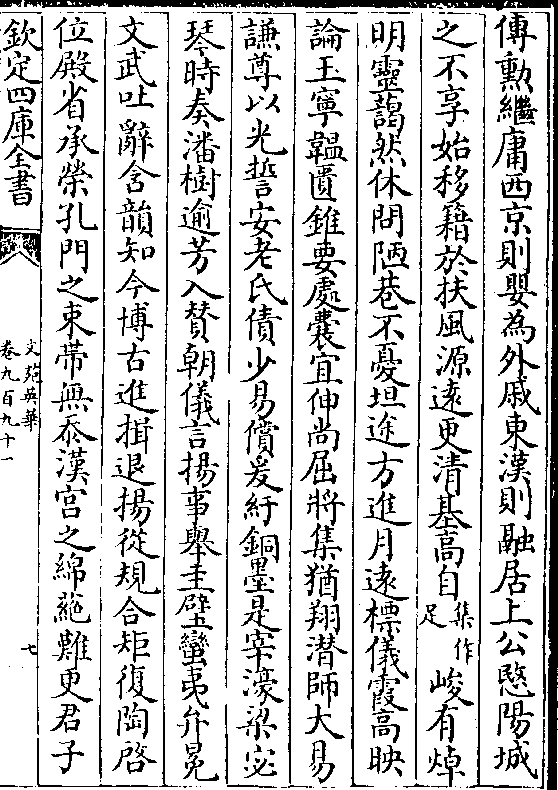 傳勲繼庸西京則嬰為外戚東漢則融居上公愍陽城
之不享始移籍於扶風源遠更清基高自集作足峻有焯
明靈藹然休問陋巷不憂坦途方進月遠標儀霞高映
論玉寧韞匱錐要處囊宜伸尚屈將集猶翔潜師大易
謙尊以光誓安老氏債少易償爰紆銅墨是宰濠梁宓
琴時奏潘樹逾芳入賛朝儀言揚事舉圭璧蠻夷弁冕
文武吐辭含韻知今博古進揖退揚從規合矩復陶啓
位殿省承榮孔門之束帶無忝漢宫之綿蕝難更君子
欽定四庫全書
文苑英華
卷九百九十一
七